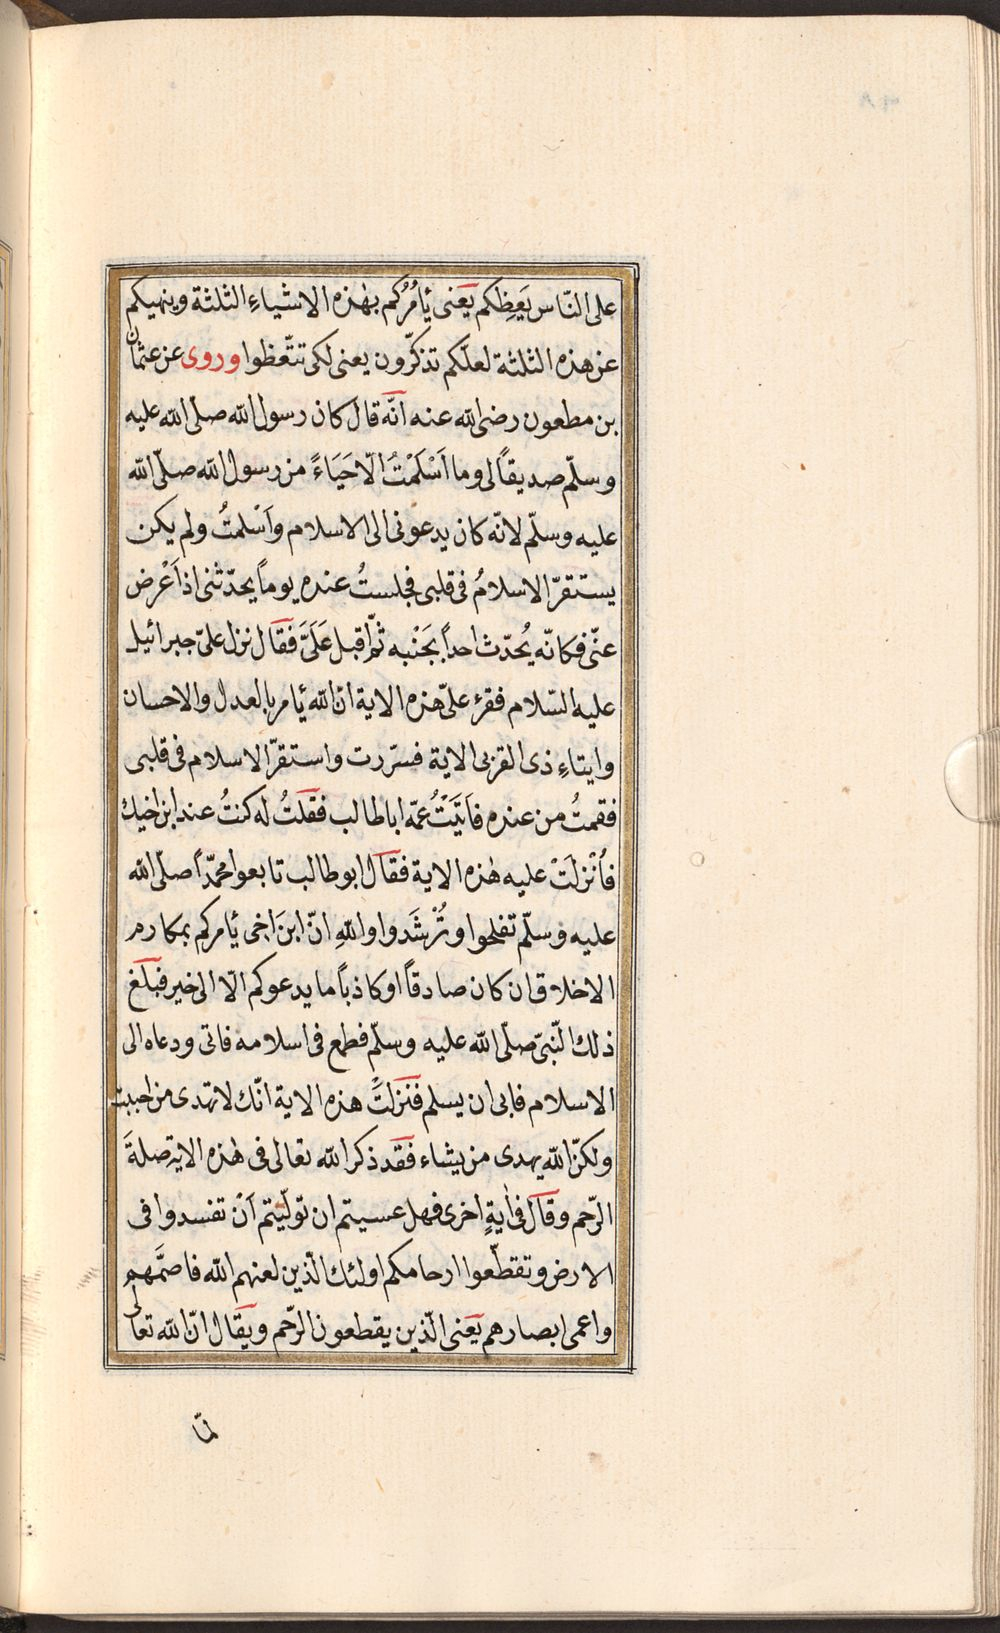 على النّاس يَعِظِكم يَعنى يأمُرُكم بهٰذه الاشياءِ الثلثة وينهيكم
عن هذه الثلثة لعلّكم تذكّرون يعنى لكى تتّعظوا وروى عن عثمان
بن مطعون رضى الله عنه انّه قال كان رسول الله صلّى الله عليه
وسلّم صديقاً لى وما اَسْلَمْتُ الّا حَيَاءً من رسول الله صلّى الله
عليه وسلّم لانّه كان يدعونى الى الاسلام واَسْلمتُ ولم يكن
يستقرّ الاسلامُ فى قلبى فجلستُ عنده يوماً يحدّثنى اذ اَعْرض
عنّى فكانّه يُحدّث احداً بجَنْبه ثمّ اقبل عَلَىَّ فقال نزل علىّ جبرائيل
عليه السّلام فقرء علىّ هذه الاية انّ الله يأمر بالعدل والاحسان
وايتاءِ ذى القربى الاية فسّررت واستقرّ الاسلام فى قلبى
فقمتُ من عنده فاَتَيْتُ عمّه اباطالب فقلتُ له كنتُ عند ابن اخيك
فاُنْزلَتْ عليه هٰذه الاية فقال ابوطالب تابعوا محمّداً صلّى الله
عليه وسلّم تفلحوا وتُرْشَدوا واللّهِ انّ ابنَ اَخى يأمركم بمكارم
الاخلاق ان كان صادقاً اوكاذباً ما يدعوكم الّا الى خير فبلغ
ذلك النّبىّ صلّى الله عليه وسلّم فطمع فى اسلامه فاتى ودعاه الى
الاسلام فابى ان يسلم فنزلتْ هذه الاية انّك لا تهدى من احببت
ولكنّ الله يهدى من يشاء فقد ذكر الله تعالى فى هٰذه الاية صلةَ
الرّحم وقال فى اٰيةٍ اخرى فهل عسيتم ان تولّيتم اَنْ تفسدوا فى
الارض وتقطّعوا ارحامكم اولئك الّذين لعنهم الله فاصمَّهم
واعمى ابصارهم يَعنى الّذين يقطعون الرّحم ويقال انّ الله تعالى
لمّا